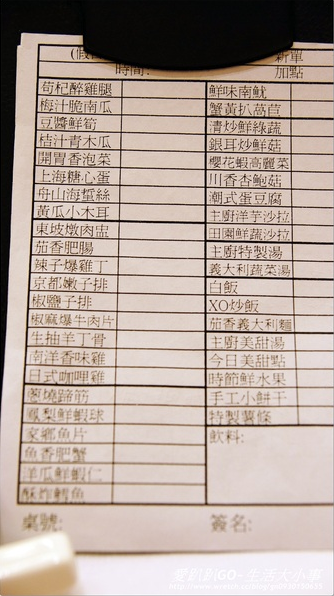 時間: 加點
荀杞醉雞腿 鮮味南魷
梅汁脆南瓜 蟹黃扒萵苣
豆醬鮮筍 清炒鮮綠蔬
桔汁青木瓜 銀耳炒鮮菇
開胃香泡菜 櫻花蝦高麗菜
上海糖心蛋 川香杏鮑菇
舟山海蜇絲 潮式蛋豆腐
黃瓜小木耳 主廚洋芋沙拉
東坡燉肉盅 田園鮮蔬沙拉
茄香肥腸 主廚特製湯
辣子爆雞丁 義大利蔬菜湯
京都嫩子排 白飯
椒鹽子排 XO炒飯
椒麻爆牛肉片 茄香義大利麵
生抽羊丁骨 主廚美甜湯
南洋香味雞 今日美甜點
日式咖哩雞 時節鮮水果
蔥燒蹄筋 手工小餅干
鳳梨鮮蝦球 特製薯條
家鄉魚片 飲料:
魚香肥蟹
羊瓜鮮蝦仁
酥炸鱈魚
桌號: 簽名:
愛趴趴GO-生活大小事